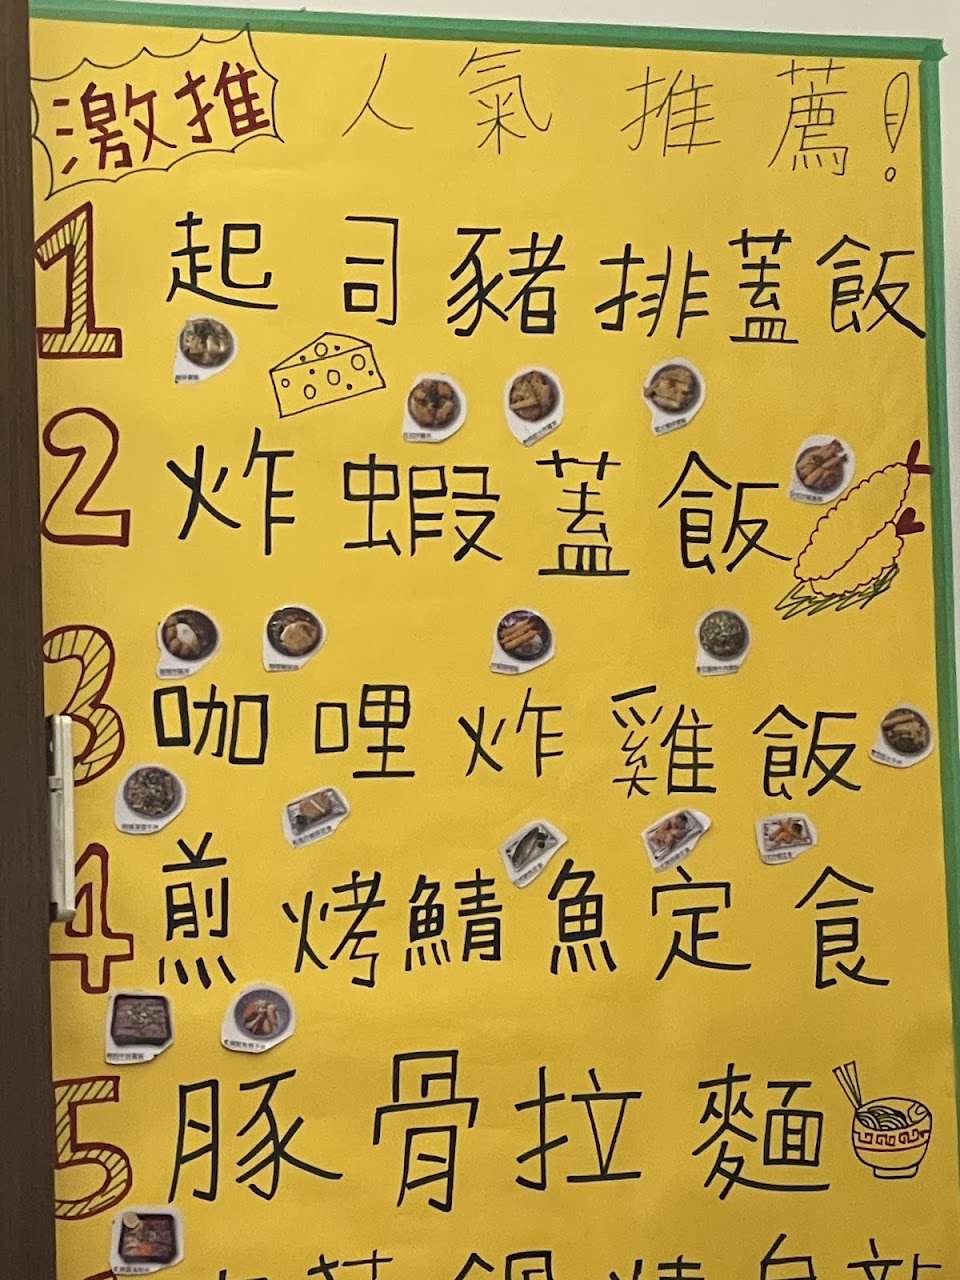 激推 人氣推薦!
1 起司豬排蓋飯
2 炸蝦蓋飯
3 咖哩炸雞飯
4 煎烤鯖魚定食
5 豚骨拉麵